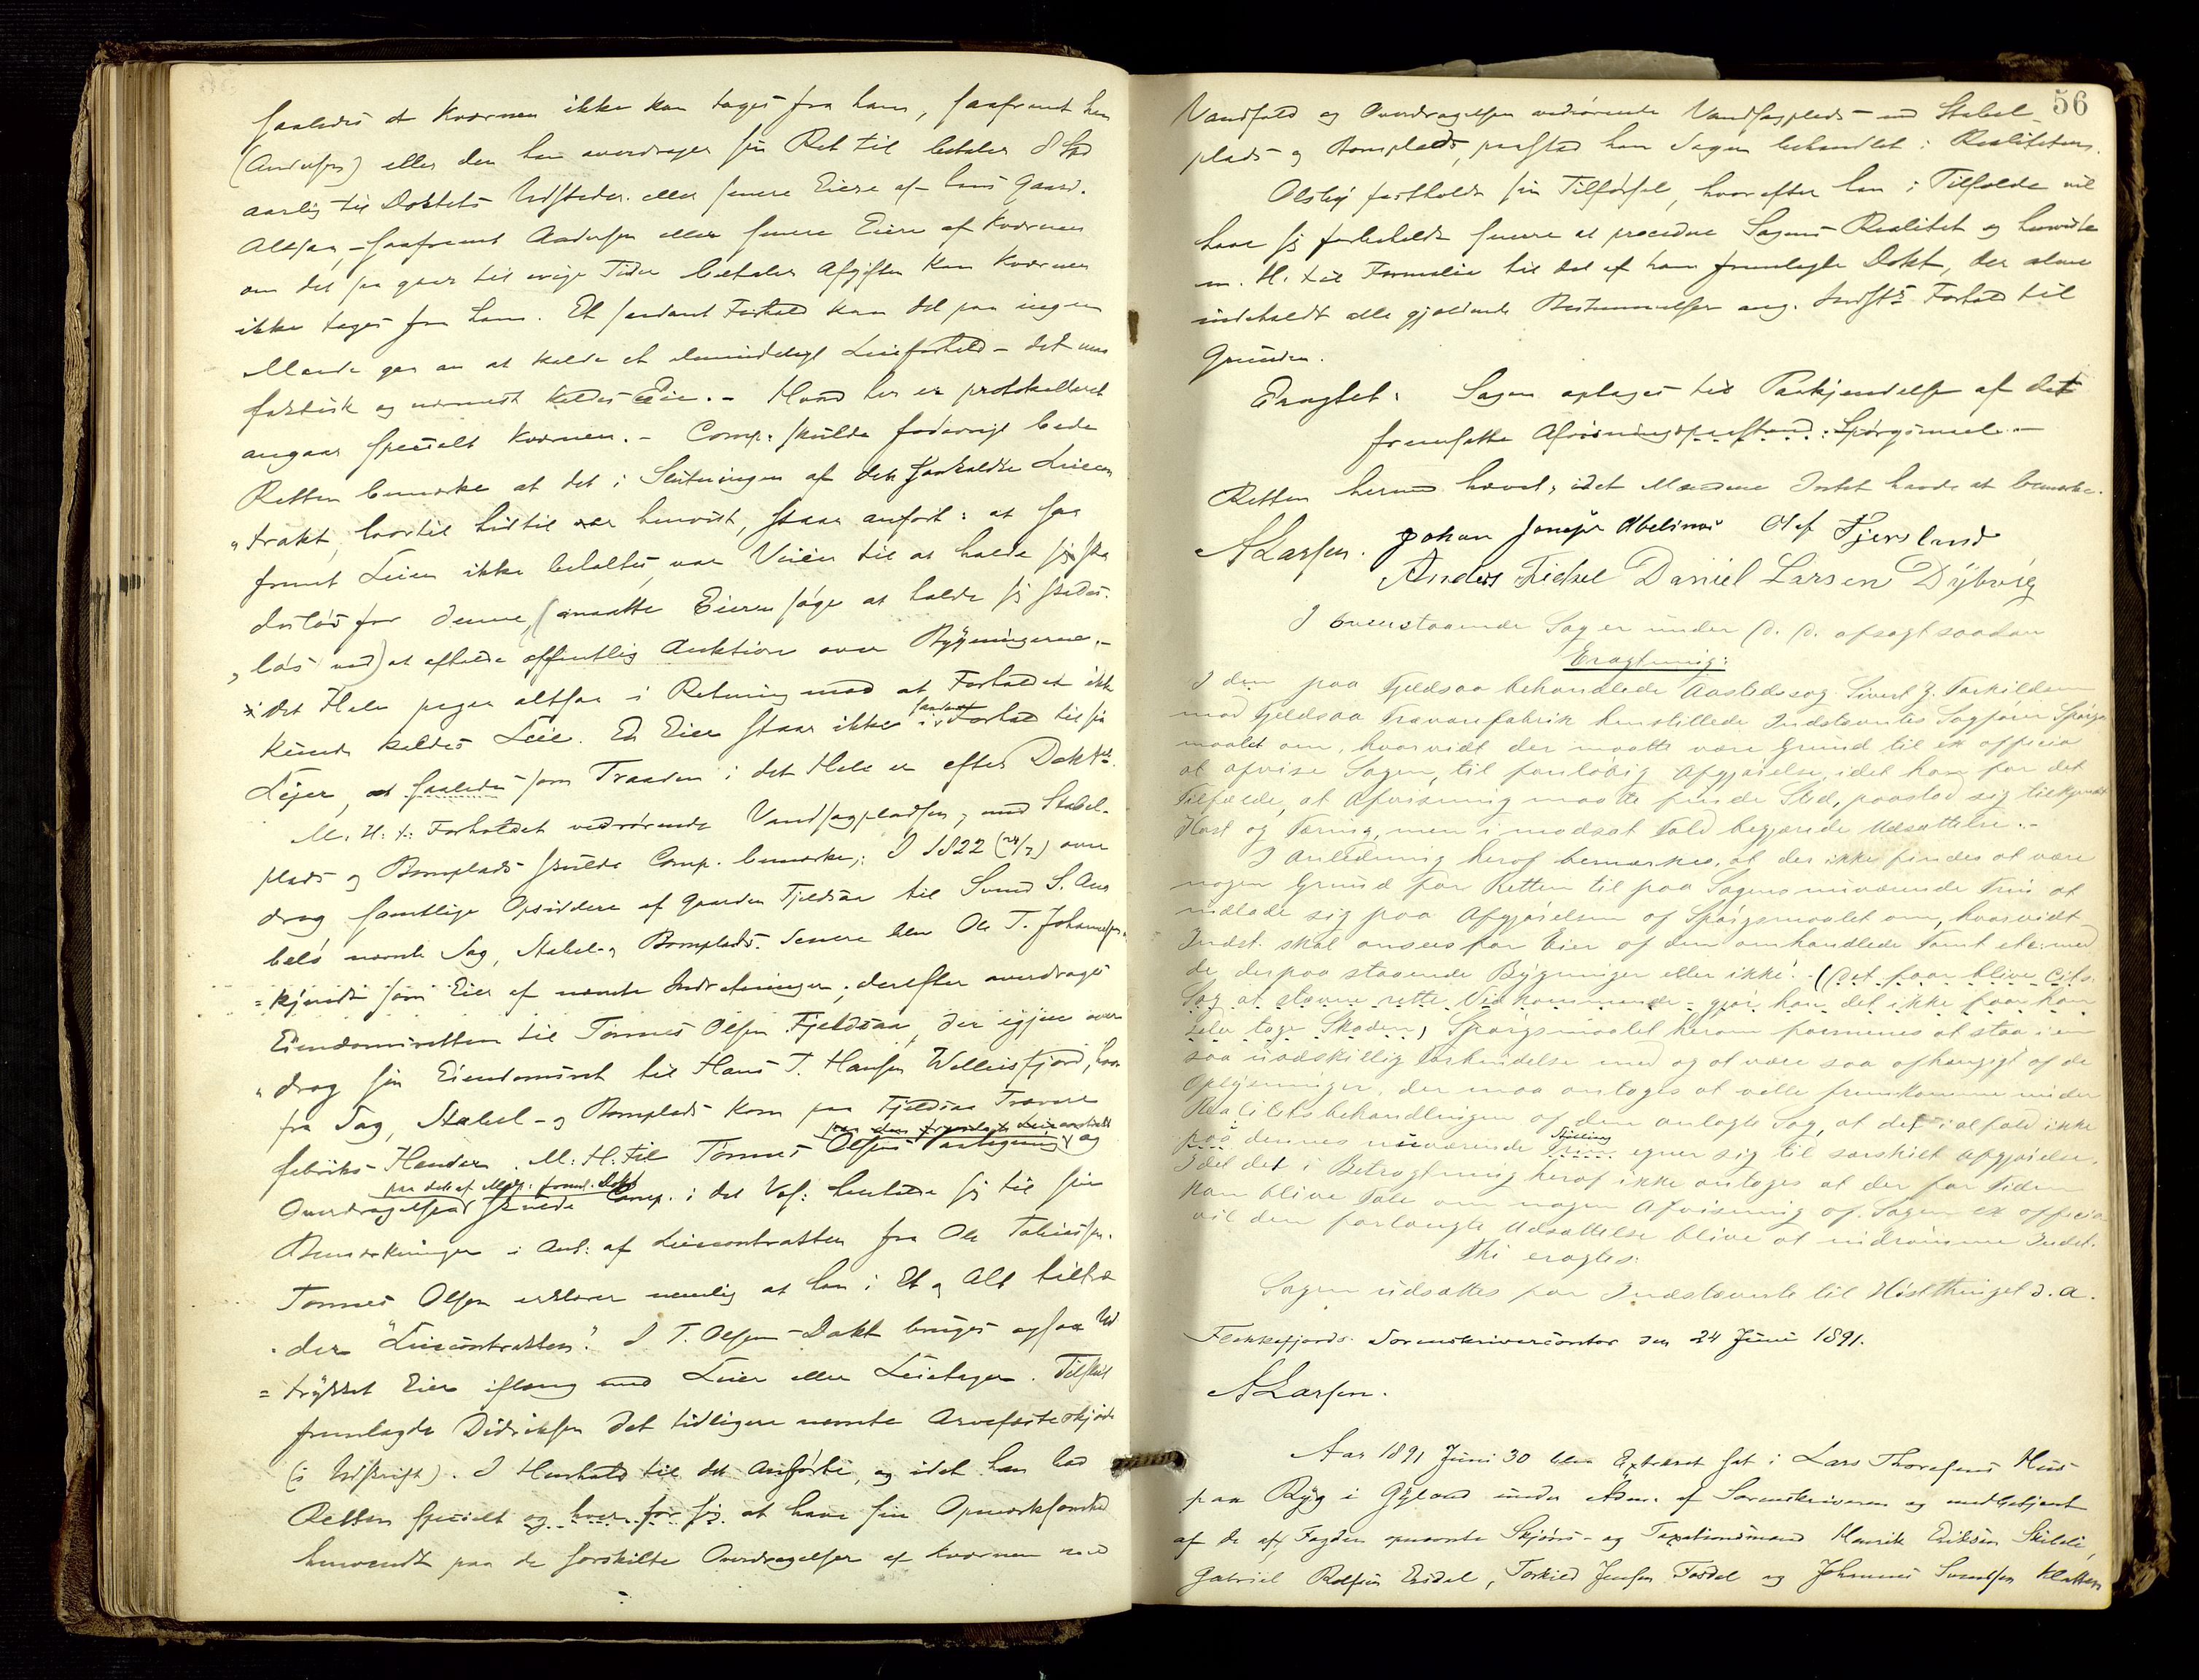 saaledes at Kværnen ikke kan tages fra ham, saafremt han
(Andersen) eller den han overdrager sin Ret til betaler 8 Spd
aarlig til Doktets Udsteder eller senere Eiere af hans Gaard.
Altsaa, saafremt Andersen eller senere Eiere af Kværnen
om det saa gaar til evige Tider betaler Afgiften kan Kværnen
ikke tages fra ham. Et saadant Forhold kan det paa ingen
Maade gaa an at kalde et almindeligt Leieforhold – det maa
faktisk og nærmest kaldes Eie. – Hvad her er protokolleret
angaar specielt Kværnen. – Comp. skulde forøvrigt bede
Retten bemærke at det i Slutningen af den saakaldte Leiecon
"trakt, hvortil hidtil er henvist, staar anført: at saa
fremt Leien ikke betaltes, var Veien til at holde sig ska
desløs for denne, (maatte Eieren søge at holde sig skades-
"løs ved) at afholde offentlig Auktion over Bygningerne. –
i det Hele peger altsaa i Retning mod at Forholdet ikke
kunde kaldes Leie. En Eier staar ikke i saadant Forhold til sin
Lejer, at saaledes som Traaden i det Hele er efter Doktet.
M. H. t. Forholdet vedrørende Vandsagpladsen, med Stabel-
plads og Bomplads skulde Comp. bemærke: I 1822 (24/7) over
drog samtlige Opsiddere af Gaarden Fjeldsaa til Svend S. Aa
beló nævnte Sag, Stabel- og Bomplads. Senere blev Ole T. Johannesen
=kjendt som Eier af nævnte Indretninger; derefter overdroges
Eiendomsretten til Tønnes Olsen Fjeldsaa, der igjen over
"drog sin Eiendomsret til Hans T. Hansen Welleisfjord, hvor
fra Sag, Stabel- og Bomplads kom paa Fjeldsaa Trævare
fabriks Hænder. M. H. til Tønnes Olsens Paategning paa den fremlagte Leiecontrakt og
Overdragelsen paa det af Modp. freml. Dokt skulde Comp. i det Væs: henholde sig til sin
Bemærkninger i Anl: af Leiecontrakten fra Ole Tobiassen.
Tønnes Olsen erklærer nemlig at han i Et og Alt tiltræ
"der "Leiecontrakten". I T. Olsen-Dokt bruges ogsaa Ud
=trykket Eier iflæng med Leier eller Leietager. Tilsidst
fremlagde Didriksen det tidligere nævnte Arvefæsteskjøde
(i Udskrift). I Henhold til det Anførte, og idet han bad
Retten specielt og hver for sig at have sin Opmærksomhed
henvendt paa de forskilte Overdragelser af Kværnen med
56
Vandfald og Overdragelsen vedrørende Vandsagplads med Stabel-
plads og Bomplads, paastod han Sagen behandlet i Realiteten.
Olsby fastholdt sin Tilførsel, hvorefter han i Tilfælde vil
have sig forbeholdt senere at procedere Sagens Realitet og henviste
m. H. t. Formalia til det af ham fremlagte Dokt, der alene
indeholdt alle gjældende Bestemmelser ang. Indst's Forhold til
Grunden.
Eragtet: Sagen optages til Paakjendelse af det
fremsatte Afvisningspaastand: Spørgsmaal. –
Retten hermed hævet, idet Mændene Intet havde at bemærke.
ALarsen. Johan Jonassen Abelsnes Olaf Fjersland
Anders Fredsel Daniel Larsen Dybvig
I ovenstaaende Sag er under D. D. afsagt saadan
Eragtning:
I den paa Fjeldsaa behandlede Aastedssag Sivert J. Torkildsen
mod Fjeldsaa Trævarefabrik henstillede Indstævntes Sagfører Spørgs
maalet om, hvorvidt der maatte være Grund til ex officio
at afvise Sagen, til foreløbig Afgjørelse, idet han for det
Tilfælde, at Afvisning maatte finde Sted, paastod sig tilkjendt
Kost og Tæring, men i modsat Fald begjærede Udsættelse. –
I Anledning heraf bemærkes, at der ikke findes at være
nogen Grund for Retten til paa Sagens nuværende Trin at
indlade sig paa Afgjørelsen af Spørgsmaalet om, hvorvidt
Indst. skal ansees for Eier af den omhandlede Tomt etc. med
de derpaa staaende Bygninger eller ikke. (Det faar blive Cits.
Sag at stævne rette Vedkommende – gjør han det ikke faar han
selv tage Skaden) Spørgsmaalet herom formenes at staa i en
saa uadskillig Forbindelse med og at være saa afhængigt af de
Oplysninger, der maa antages at ville fremkomme under
Realitetsbehandlingen af den anlagte Sag, at det ialfald ikke
paa dennes nuværende Stilling Trin egner sig til særskilt Afgjørelse.
Idet det i Betragtning heraf ikke antages at der for Tiden
kan blive Tale om nogen Afvisning af Sagen ex officio
vil den forlangte Udsættelse blive at indrømme Indst.
Thi eragtes:
Sagen udsættes for Indstævnte til Høstthinget d. A.
Flekkefjords Sorenskrivercontor den 24 Juni 1891.
ALarsen.
Aar 1891 Juni 30 blev Extraret sat i Lars Thorsens Hus
paa Ryg i Gyland under Adm. af Sorenskriveren og medbetjent
af de af Fogden opnævnte Skjøns- og Taxationsmænd Henrik Eriksen Skibeli,
Gabriel Rolfsen Ersdal, Torkild Jensen Tosdal og Johannes Svendsen Kletten